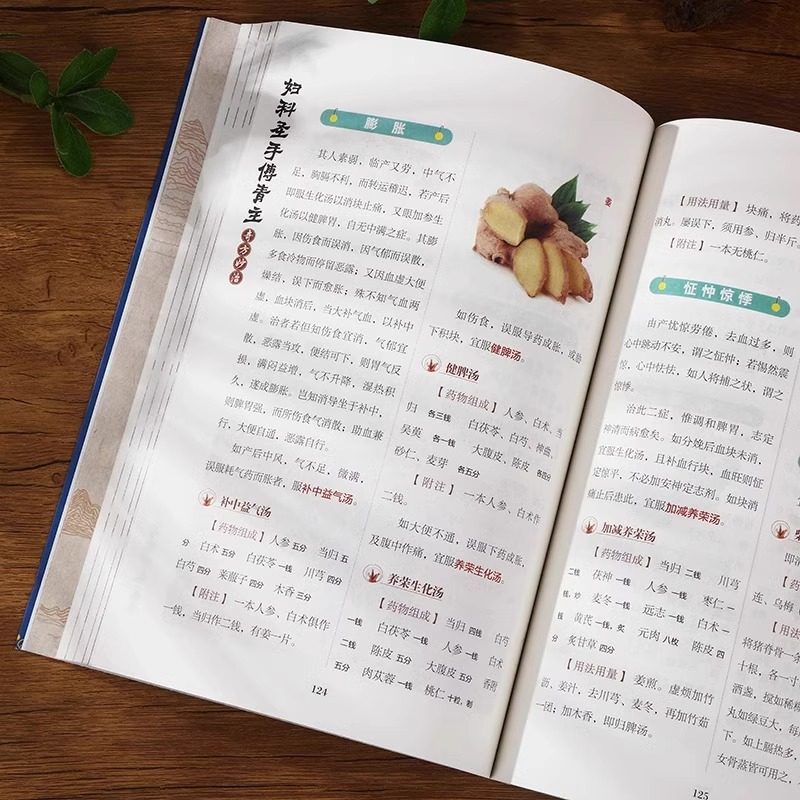 妇科圣手傅青主
奇方妙治
膨胀
其人素弱，临产又劳，中气不
足，胸膈不利，而转运稽迟，若产后
即服生化汤以消块止痛，又服加参生
化汤以健脾胃，自无中满之症。其膨
胀，因伤食而误消，因气郁而误散，
多食冷物而停留恶露；又因血虚大便
燥结，误下而愈胀；殊不知气血两
虚，血块消后，当大补气血，以补中
虚。治者若但知伤食宜消，气郁宜
散，恶露当攻，便结可下，则胃气反
损，满闷益增，气不升降，湿热积
久，遂成膨胀。岂知消导坐于补中，
则脾胃强，而所伤食气消散；助血兼
行，大便自通，恶露自行。
如产后中风，气不足，微满，
误服耗气药而胀者，服补中益气汤。
补中益气汤
【药物组成】人参 五分 当归 五
分 白术 五分 白茯苓 一钱 川芎 四分
白芍 四分 莱菔子 四分 木香 三分
【附注】一本人参、白术俱作
一钱，当归作二钱，有姜一片。
姜
如伤食，误服导药成胀，或胁
下积块，宜服健脾汤。
健脾汤
【药物组成】人参、白术、当
归 各三钱 白茯苓、白芍、神曲、
吴萸 各一钱 大腹皮、陈皮 各四分
砂仁、麦芽 各五分
【附注】一本人参、白术作
二钱。
如大便不通，误服下药成胀，
及腹中作痛，宜服养荣生化汤。
养荣生化汤
【药物组成】当归 四钱 白芍
一钱 白茯苓 一钱 人参 一钱 白术
二钱 陈皮 五分 大腹皮 五分 香附
五分 肉苁蓉 一钱 桃仁 十粒，制
124
【用法用量】块痛，将药
消丸。屡误下，须用参、归半斤
【附注】一本无桃仁。
怔忡惊悸
由产忧惊劳倦，去血过多，则
心中跳动不安，谓之怔忡；若惕然震
惊，心中怯怯，如人将捕之状，谓之
惊悸。
治此二症，惟调和脾胃，志定
神清而病愈矣。如分娩后血块未消，
宜服生化汤，且补血行块，血旺则怔
定惊平，不必加安神定志剂。如块消
痛止后患此，宜服加减养荣汤。
加减养荣汤
【药物组成】当归 二钱 川芎
二钱 茯神 一钱 人参 一钱 枣仁 一
钱，炒 麦冬 一钱 远志 一钱 白术 一
钱 黄芪 一钱，炙 元肉 八枚 陈皮 四
分 炙甘草 四分
【用法用量】姜煎。虚烦加竹
沥、姜汁，去川芎、麦冬，再加竹茹
一团；加木香，即归脾汤。
即消
连、乌梅
【用法
将猪脊骨一条
十根，各一寸
酒盏，搅如稀糊
丸如绿豆大，每
下。如上膈热多，
女骨蒸皆可用之，
125